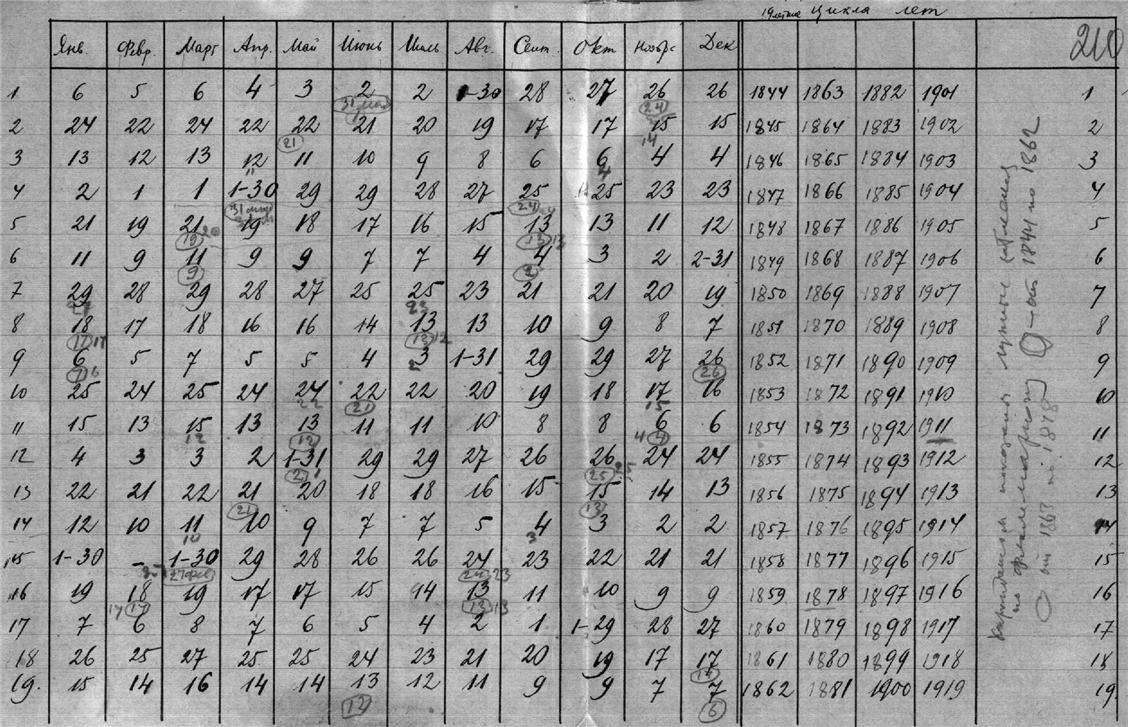 19летние цикла лет
Янв. Февр. Март Апр. Май Июнь Июль Авг. Сент. Окт Ноябрь Дек 210
1 6 5 6 4 3 2 2 1-30 28 27 26 26 1844 1863 1882 1901 1
31 мая 24
2 24 22 24 22 22 21 20 19 17 17 15 15 1845 1864 1883 1902 2
21 14
3 13 12 13 12 11 10 9 8 6 6 4 4 1846 1865 1884 1903 3
11 4
4 2 1 1 1-30 29 29 28 27 25 25 23 23 1847 1866 1885 1904 4
31 мар 24
5 21 19 21 19 18 17 16 15 13 13 11 12 1848 1867 1886 1905 5
19 20 13 13
6 11 9 11 9 9 7 7 4 4 3 2 2-31 1849 1868 1887 1906 6
9 2
7 29 28 29 28 27 25 25 23 21 21 20 19 1850 1869 1888 1907 7
23
8 18 17 18 16 16 14 13 13 10 9 8 7 1851 1870 1889 1908 8
17 17 13 12
9 6 5 7 5 5 4 3 1-31 29 29 27 26 1852 1871 1890 1909 9
7 6 26
10 25 24 25 24 24 22 22 20 19 18 17 16 1853 1872 1891 1910 10
22 21 15
11 15 13 15 13 13 11 11 10 8 8 6 6 1854 1873 1892 1911 11
12 12 4 4
12 4 3 3 2 1-31 29 29 27 26 26 24 24 1855 1874 1893 1912 12
2 25
13 22 21 22 21 20 18 18 16 15 15 14 13 1856 1875 1894 1913 13
21 13
14 12 10 11 10 9 7 7 5 4 3 2 2 1857 1876 1895 1914 14
10 3
15 1-30 - 1-30 29 28 26 26 24 23 22 21 21 1858 1877 1896 1915 15
27 фев 24 23
16 19 18 19 17 17 15 14 13 11 10 9 9 1859 1878 1897 1916 16
17 17 13 13
17 7 6 8 7 6 5 4 2 1 1-29 28 27 1860 1879 1898 1917 17
18 26 25 27 25 25 24 23 21 20 19 17 17 1861 1880 1899 1918 18
19. 15 14 16 14 14 13 12 11 9 9 7 7 1862 1881 1900 1919 19
12 6
Карандашом лунные
по от 1844 по 1862
от 1863 по 1878